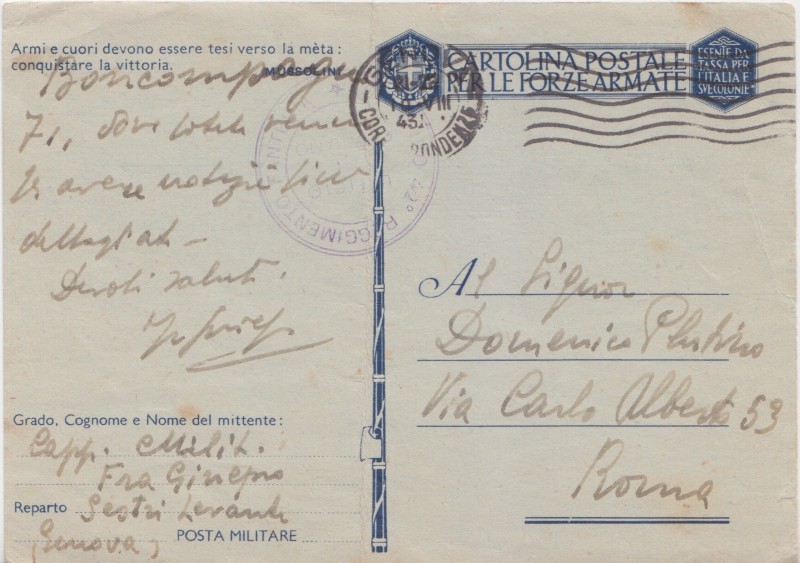 Armi e cuori devono essere tesi verso la mèta :
conquistare la vittoria.
MUSSOLINI
Boncompagni
71, dove potrà
avere notizie più
dettagliate
Devoti saluti.
Grado, Cognome e Nome del mittente :
Capp. Milit.
Fra Ginepro
Reparto Sestri Levante
(Genova) POSTA MILITARE
CARTOLINA POSTALE
PER LE FORZE ARMATE
ESENTE DA
TASSA PER
L'ITALIA E
SVE COLONIE
VIII
43
CORRISPONDENZE
42° REGGIMENTO FANT
Al Signor
Domenico Plutino
Via Carlo Alberto 53
Roma